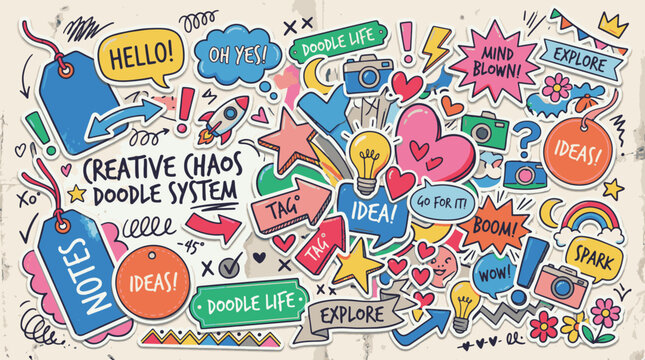 HELLO!
OH YES!
DOODLE LIFE
MIND
BLOWN!
EXPLORE
IDEAS!
CREATIVE CHAOS
DOODLE SYSTEM
XO
TAG
IDEA!
GO FOR IT!
BOOM!
TAG
NOTES
IDEAS!
~45°
WOW!
SPARK
DOODLE LIFE
EXPLORE